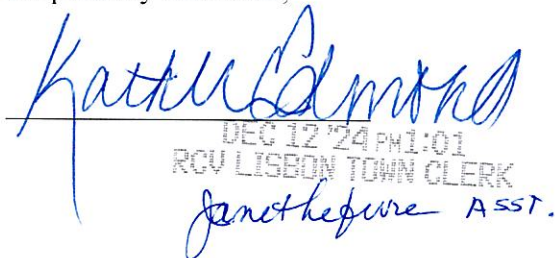 Kathll Edmond
DEC 12 '24 PM 1:01
RCV LISBON TOWN CLERK
Janet Lefevre ASST.